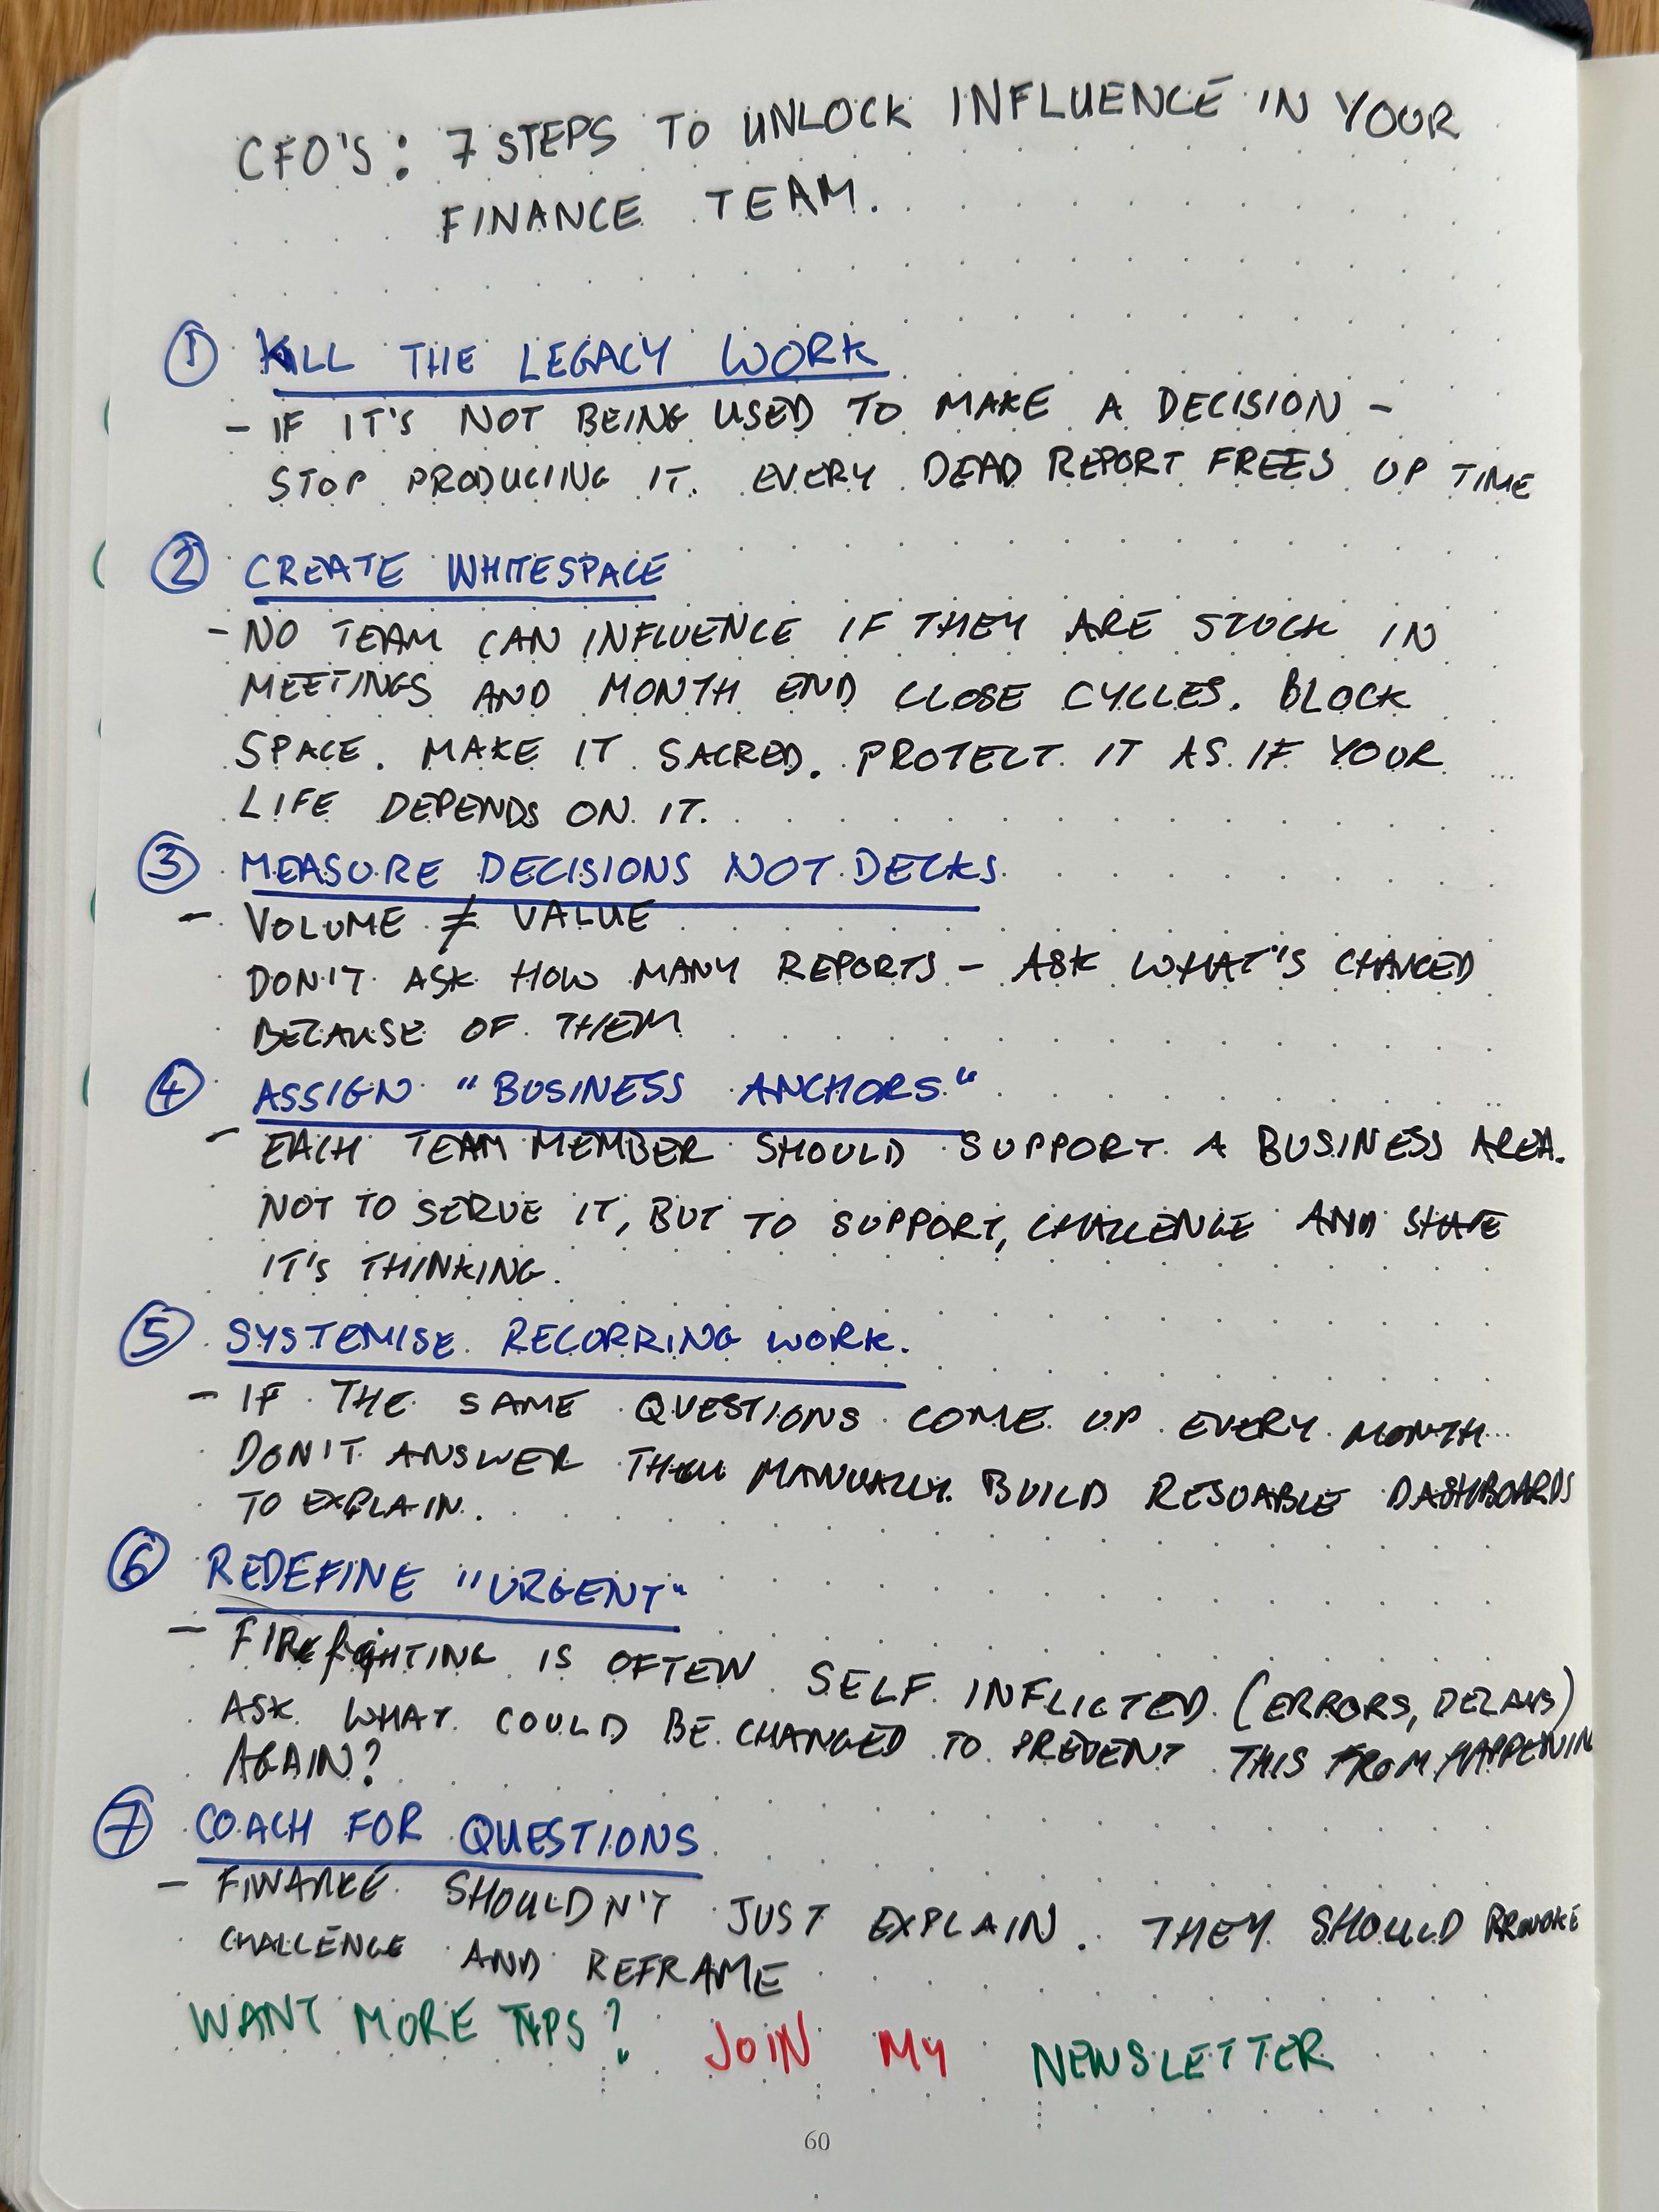 CFO'S: 7 STEPS TO UNLOCK INFLUENCE IN YOUR
FINANCE TEAM.
① KILL THE LEGACY WORK
- IF IT'S NOT BEING USED TO MAKE A DECISION -
STOP PRODUCING IT. EVERY DEAD REPORT FREES UP TIME
② CREATE WHITESPACE
- NO TEAM CAN INFLUENCE IF THEY ARE STUCK IN
MEETINGS AND MONTH END CLOSE CYCLES. BLOCK
SPACE. MAKE IT SACRED. PROTECT IT AS IF YOUR
LIFE DEPENDS ON IT.
③ MEASURE DECISIONS NOT DECKS
- VOLUME ≠ VALUE
DON'T ASK HOW MANY REPORTS - ASK WHAT'S CHANGED
BECAUSE OF THEM
④ ASSIGN "BUSINESS ANCHORS"
- EACH TEAM MEMBER SHOULD SUPPORT A BUSINESS AREA.
NOT TO SERVE IT, BUT TO SUPPORT, CHALLENGE AND
IT'S THINKING.
⑤ SYSTEMISE RECURRING WORK.
- IF THE SAME QUESTIONS COME UP EVERY MONTH
DON'T ANSWER THEM MANUALLY. BUILD RESUABLE DASHBOARDS
TO EXPLAIN.
⑥ REDEFINE "URGENT"
- FIREfIGHTING IS OFTEN SELF INFLICTED. (ERRORS, DELAYS)
ASK WHAT COULD BE CHANGED TO PREVENT THIS FROM HAPPENIN
AGAIN?
⑦ COACH FOR QUESTIONS
- FINANCE SHOULDN'T JUST EXPLAIN. THEY SHOULD PROVOKE
CHALLENGE AND REFRAME
WANT MORE TIPS? JOIN MY NEWSLETTER
60